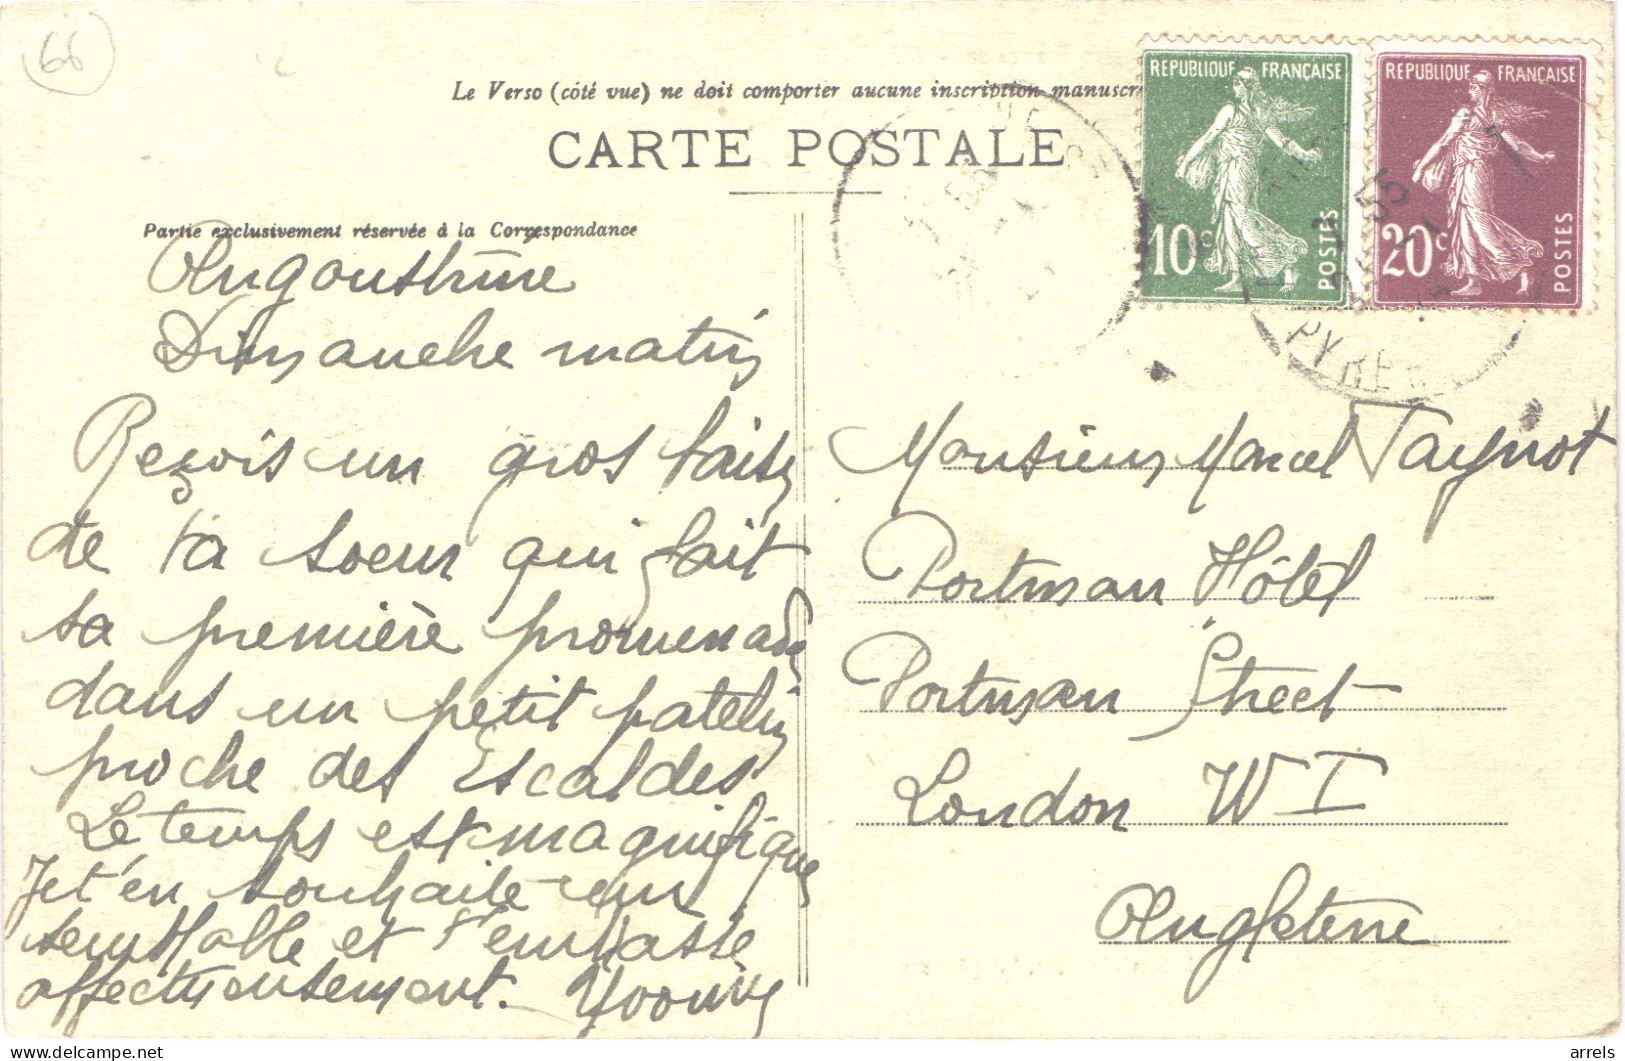 66
Le Verso (côté vue) ne doit comporter aucune inscription manuscr
CARTE POSTALE
REPUBLIQUE FRANÇAISE
10c
POSTES
REPUBLIQUE FRANÇAISE
20c
POSTES
PYRE
Partie exclusivement réservée à la Correspondance
Angoustrine
Dimanche matin
Reçois un gros baiser
de ta soeur qui fait
sa première promenade
dans un petit patelin
proche des Escaldes
Le temps est magnifique
Je t'en souhaite un
semblable et t'embrasse
affectueusement. Yvonne
Monsieur Marcel Taynot
Portman Hôtel
Portman Street
London W I
Angleterre
arrels